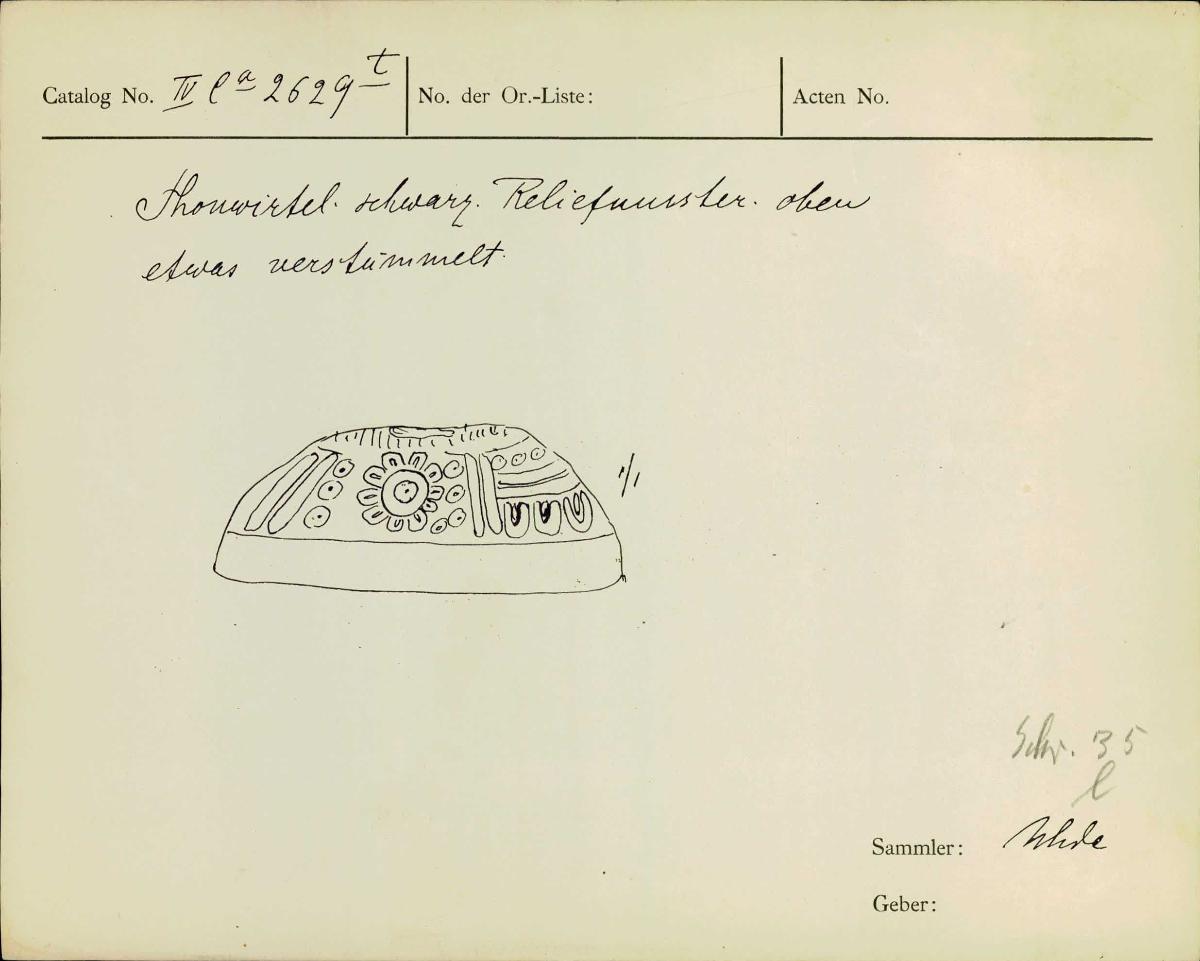 Catalog No. IV Ca 2629 t
No. der Or.-Liste:
Acten No.
Thonwirtel. schwarz. Reliefmuster. oben
etwas verstümmelt.
1/1
Schr. 35
l
Sammler: Uhde
Geber: